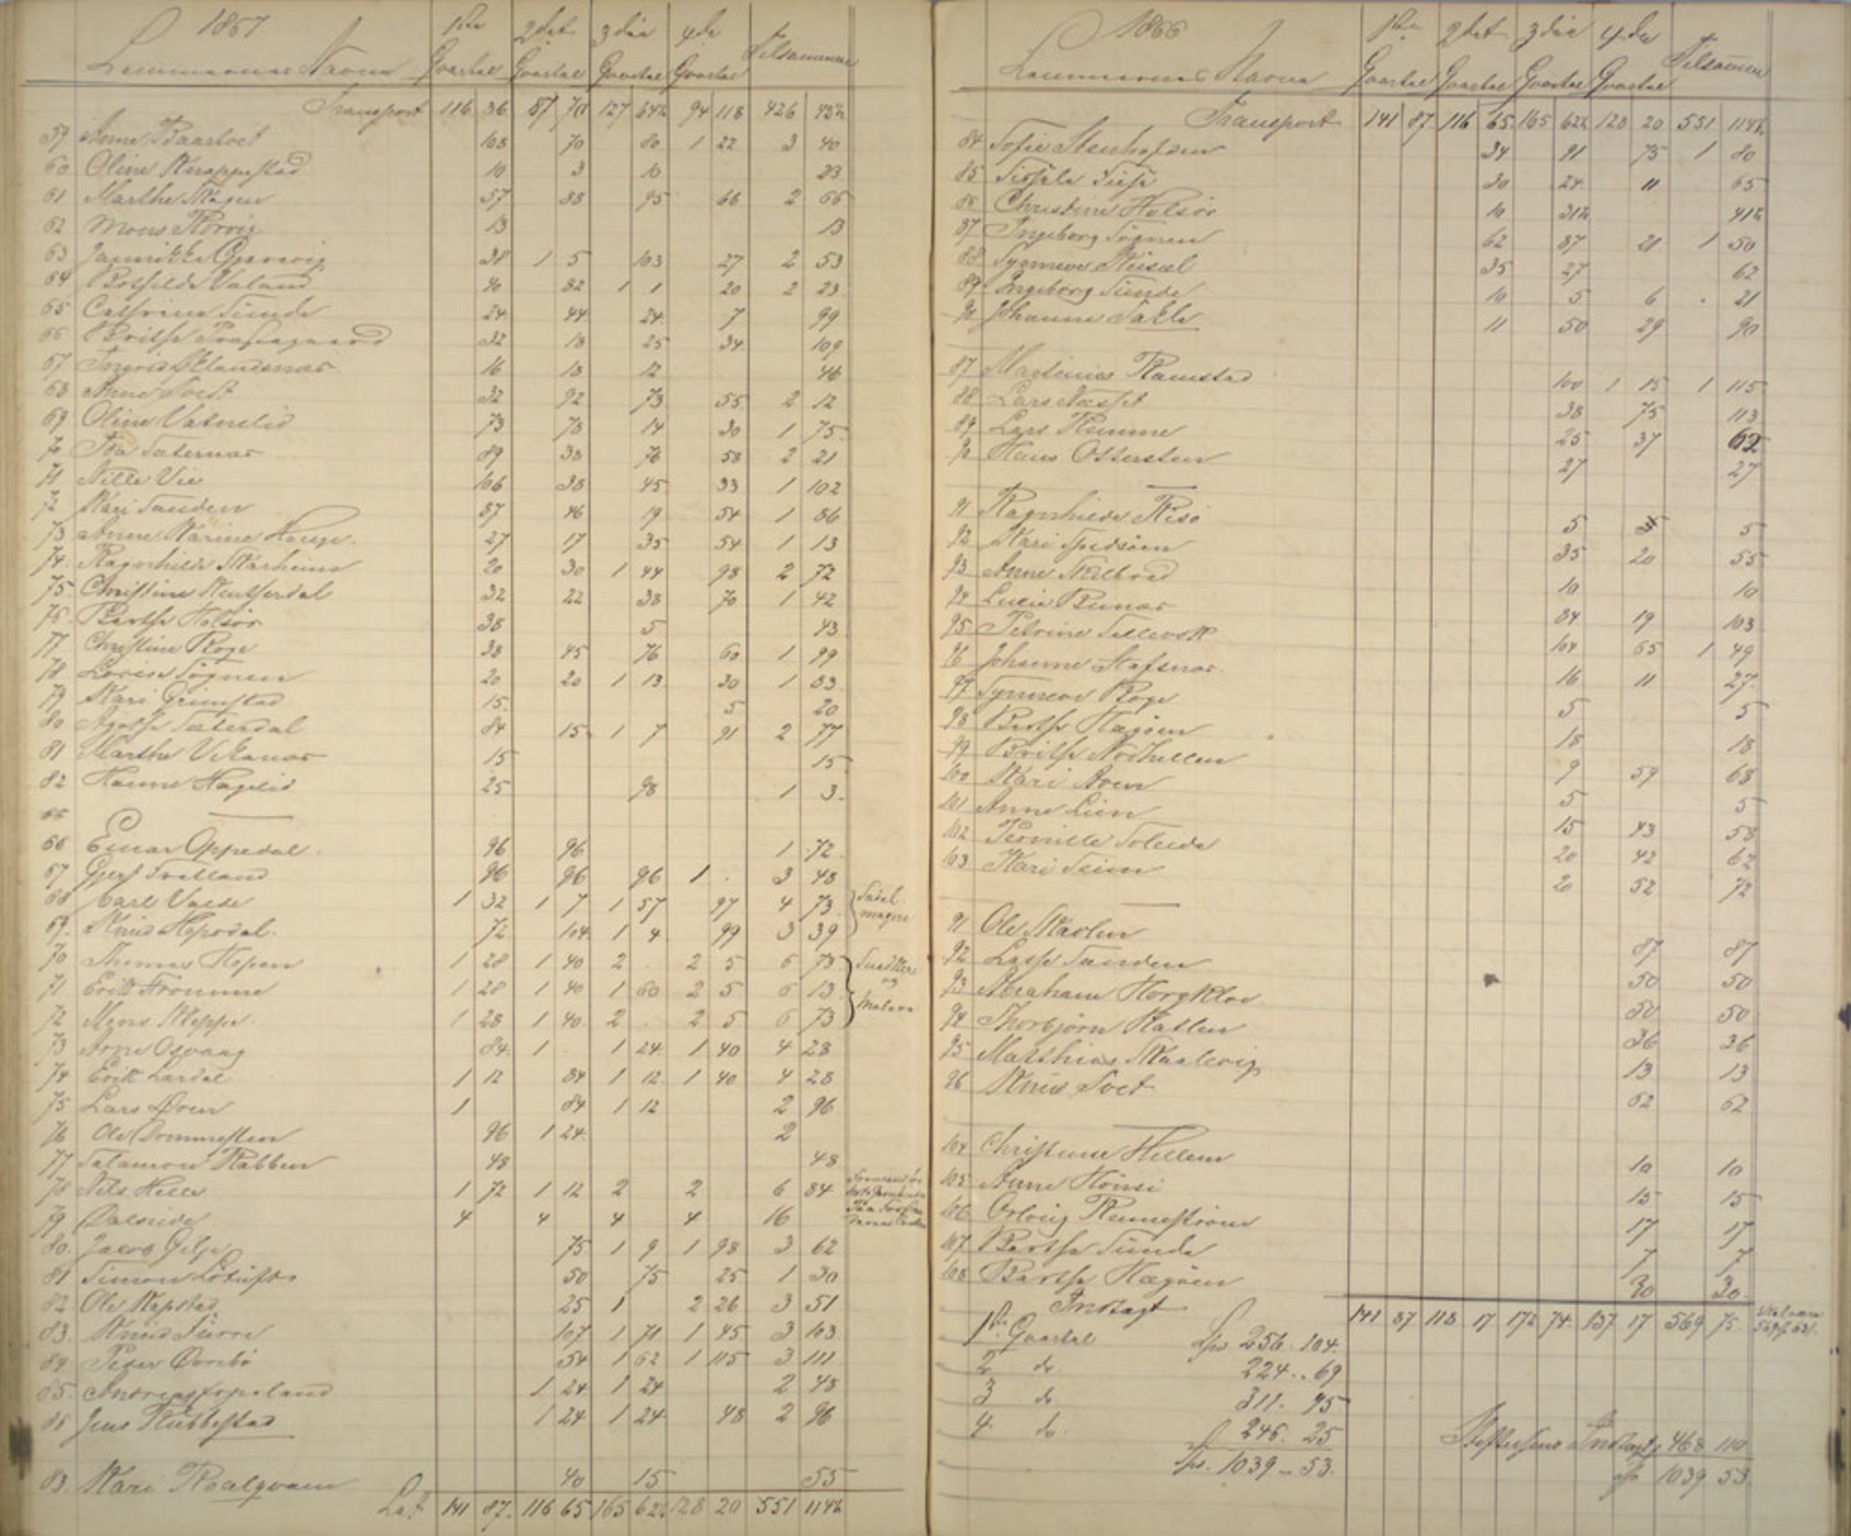 1867 1ste 2det 3die 4de Tilsammen
Lemmernes Navne Qvartal Qvartal Qvartal Qvartal
Transport 116 36 87 70 127 64½ 94 118 426 48½
59 Anne Baartvet 108 70 80 1 22 3 40
60 Oline Knappestad 10 3 10 23
61 Marthe Skagen 57 88 95 66 2 66
62 Mons Rorvig 13 13
63 Jannikke Gjervig 38 1 5 103 27 2 53
64 Botsilde Valand 40 82 1 1 20 2 23
65 Cathrine Tunde 24 44 24 7 99
66 Brithe 32 18 25 34 109
67 Ingrid Sklandsnæs 16 18 12 46
68 Anne Tvedt 32 92 73 55 2 12
69 Oline Vatnelid 73 78 14 30 1 75
70 Ida Sæternæs 89 38 76 58 2 21
71 Nille Vie 106 38 45 33 1 102
72 Kari Sanden 87 46 19 54 1 86
73 Anne Karine Hauge 27 17 35 54 1 13
74 Ragnhilde Skarheim 20 30 1 44 98 2 72
75 Christine Keutserdal 32 22 38 70 1 42
76 Berthe Holsør 38 5 43
77 Christine Roge 38 45 76 60 1 99
78 Lovise Sognen 20 20 1 13 30 1 83
79 Kari Grimstad 15 5 20
80 Agathe Sæterdal 84 15 1 7 91 2 77
81 Marthe Vikanæs 15 15
82 Hanne Hagelid 25 98 1 3
66 Einar Oppedal 96 96 1 72
67 Gjert Fretland 96 96 96 1 3 48
68 Carl Valde 1 32 1 7 1 57 97 4 73 Sadelmagere
69 Knud Hopsdal 72 104 1 4 99 3 39
70 Thomas Hopen 1 28 1 40 2 2 5 6 73 Snedkere
71 Erik Fromme 1 28 1 40 1 60 2 5 6 13 og
72 Mons Kleppe 1 28 1 40 2 2 5 6 73 Malere
73 Arne Osvaag 84 1 1 24 1 40 4 28
74 Erik Lærdal 1 12 84 1 12 1 40 4 28
75 Lars Øren 1 84 1 12 2 96
76 Ole Drommesten 96 1 24 2
77 Salamon Rabben 48 48
78 Nils Helle 1 72 1 12 2 2 6 84
79 Dalseide 4 4 4 4 16
80 Jacob Gilje 75 1 9 1 98 3 62
81 Simon 50 75 25 1 30
82 Ole Kopstad 25 1 2 26 3 51
83 Knud Furre 107 1 71 1 45 3 103
84 Peder Ovrebø 54 1 62 1 115 3 111
85 Andreas Fopeland 1 24 1 24 2 48
86 Jens Kubbestad 1 24 1 24 48 2 96
83 Kari Roalqvam 40 15 55
Lat 141 87 116 65 165 62½ 128 20 551 114½
1866 1ste 2det 3die 4de Tilsammen
Lemmernes Navne Qvartal Qvartal Qvartal Qvartal
Transport 141 87 116 65 165 62½ 128 20 551 114½
84 Sofie Stenhofden 34 91 75 1 80
85 Sissela 30 24 11 65
86 Christine Holsør 10 31½ 41½
87 Ingeborg Sognen 62 87 21 1 50
88 Synneve 35 27 62
89 Ingeborg Tunde 10 5 6 21
90 Johanne Takle 11 50 29 90
87 Martinius Ramstad 100 1 15 1 115
88 Lars Næsset 38 75 113
89 Lars Rumme 25 37 62
90 Hans Ostersten 27 27
91 Ragnhilde Risø 5 5
92 Kari 35 20 55
93 Anne Skilbred 10 10
94 Lucie Runæs 84 19 103
95 Petrine 104 65 1 49
96 Johanne Stafsnæs 16 11 27
97 Synneve Roge 5 5
98 Berthe Hagøen 18 18
99 Brithe Nothellen 9 59 68
100 Kari Aven 5 5
101 Anne Lien 15 43 58
102 Pernille Soleide 20 42 62
103 Kari Seim 20 52 72
91 Ole Skarten 87 87
92 Lasse Sanden 50 50
93 Abraham Horgklov 50 50
94 Thorbjørn Hatlen 36 36
95 Matthias Skaalevig 13 13
96 Knud Tvet 62 62
104 Christense Hellem 10 10
105 Anne Honsi 15 15
106 Orlaug Rennestrøm 17 17
107 Berthe Tunde 7 7
108 Berthe Hagøen 30 30
Indtagt 141 87 118 17 172 74 137 17 569 75
1ste Qvartal Spd. 256. 104.
2 do 224.. 69
3 do 311. 95
4. do. 246. 25 Stiftelsens Indtægt 468 110
Spd. 1039 - 53. Sp 1039 53